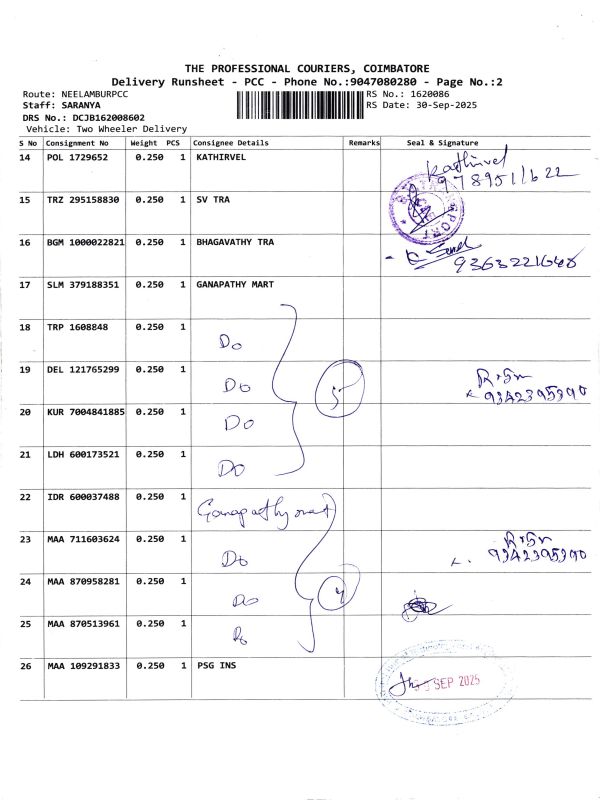 THE PROFESSIONAL COURIERS, COIMBATORE
Delivery Runsheet - PCC - Phone No.:9047080280 - Page No.:2
Route: NEELAMBURPCC
RS No.: 1620086
Staff: SARANYA
RS Date: 30-Sep-2025
DRS No.: DCJB162008602
Vehicle: Two Wheeler Delivery
S No Consignment No Weight PCS Consignee Details Remarks Seal & Signature
14 POL 1729652 0.250 1 KATHIRVEL Kathirvel
9789511622
15 TRZ 295158830 0.250 1 SV TRA
16 BGM 1000022821 0.250 1 BHAGAVATHY TRA
9363221648
17 SLM 379188351 0.250 1 GANAPATHY MART
18 TRP 1608848 0.250 1 Do
19 DEL 121765299 0.250 1 Do 5
9342395390
20 KUR 7004841885 0.250 1 Do
21 LDH 600173521 0.250 1 Do
22 IDR 600037488 0.250 1 Ganapathy mart
23 MAA 711603624 0.250 1 Do
9342395390
24 MAA 870958281 0.250 1 Do 4
25 MAA 870513961 0.250 1 Do
26 MAA 109291833 0.250 1 PSG INS
SEP 2025